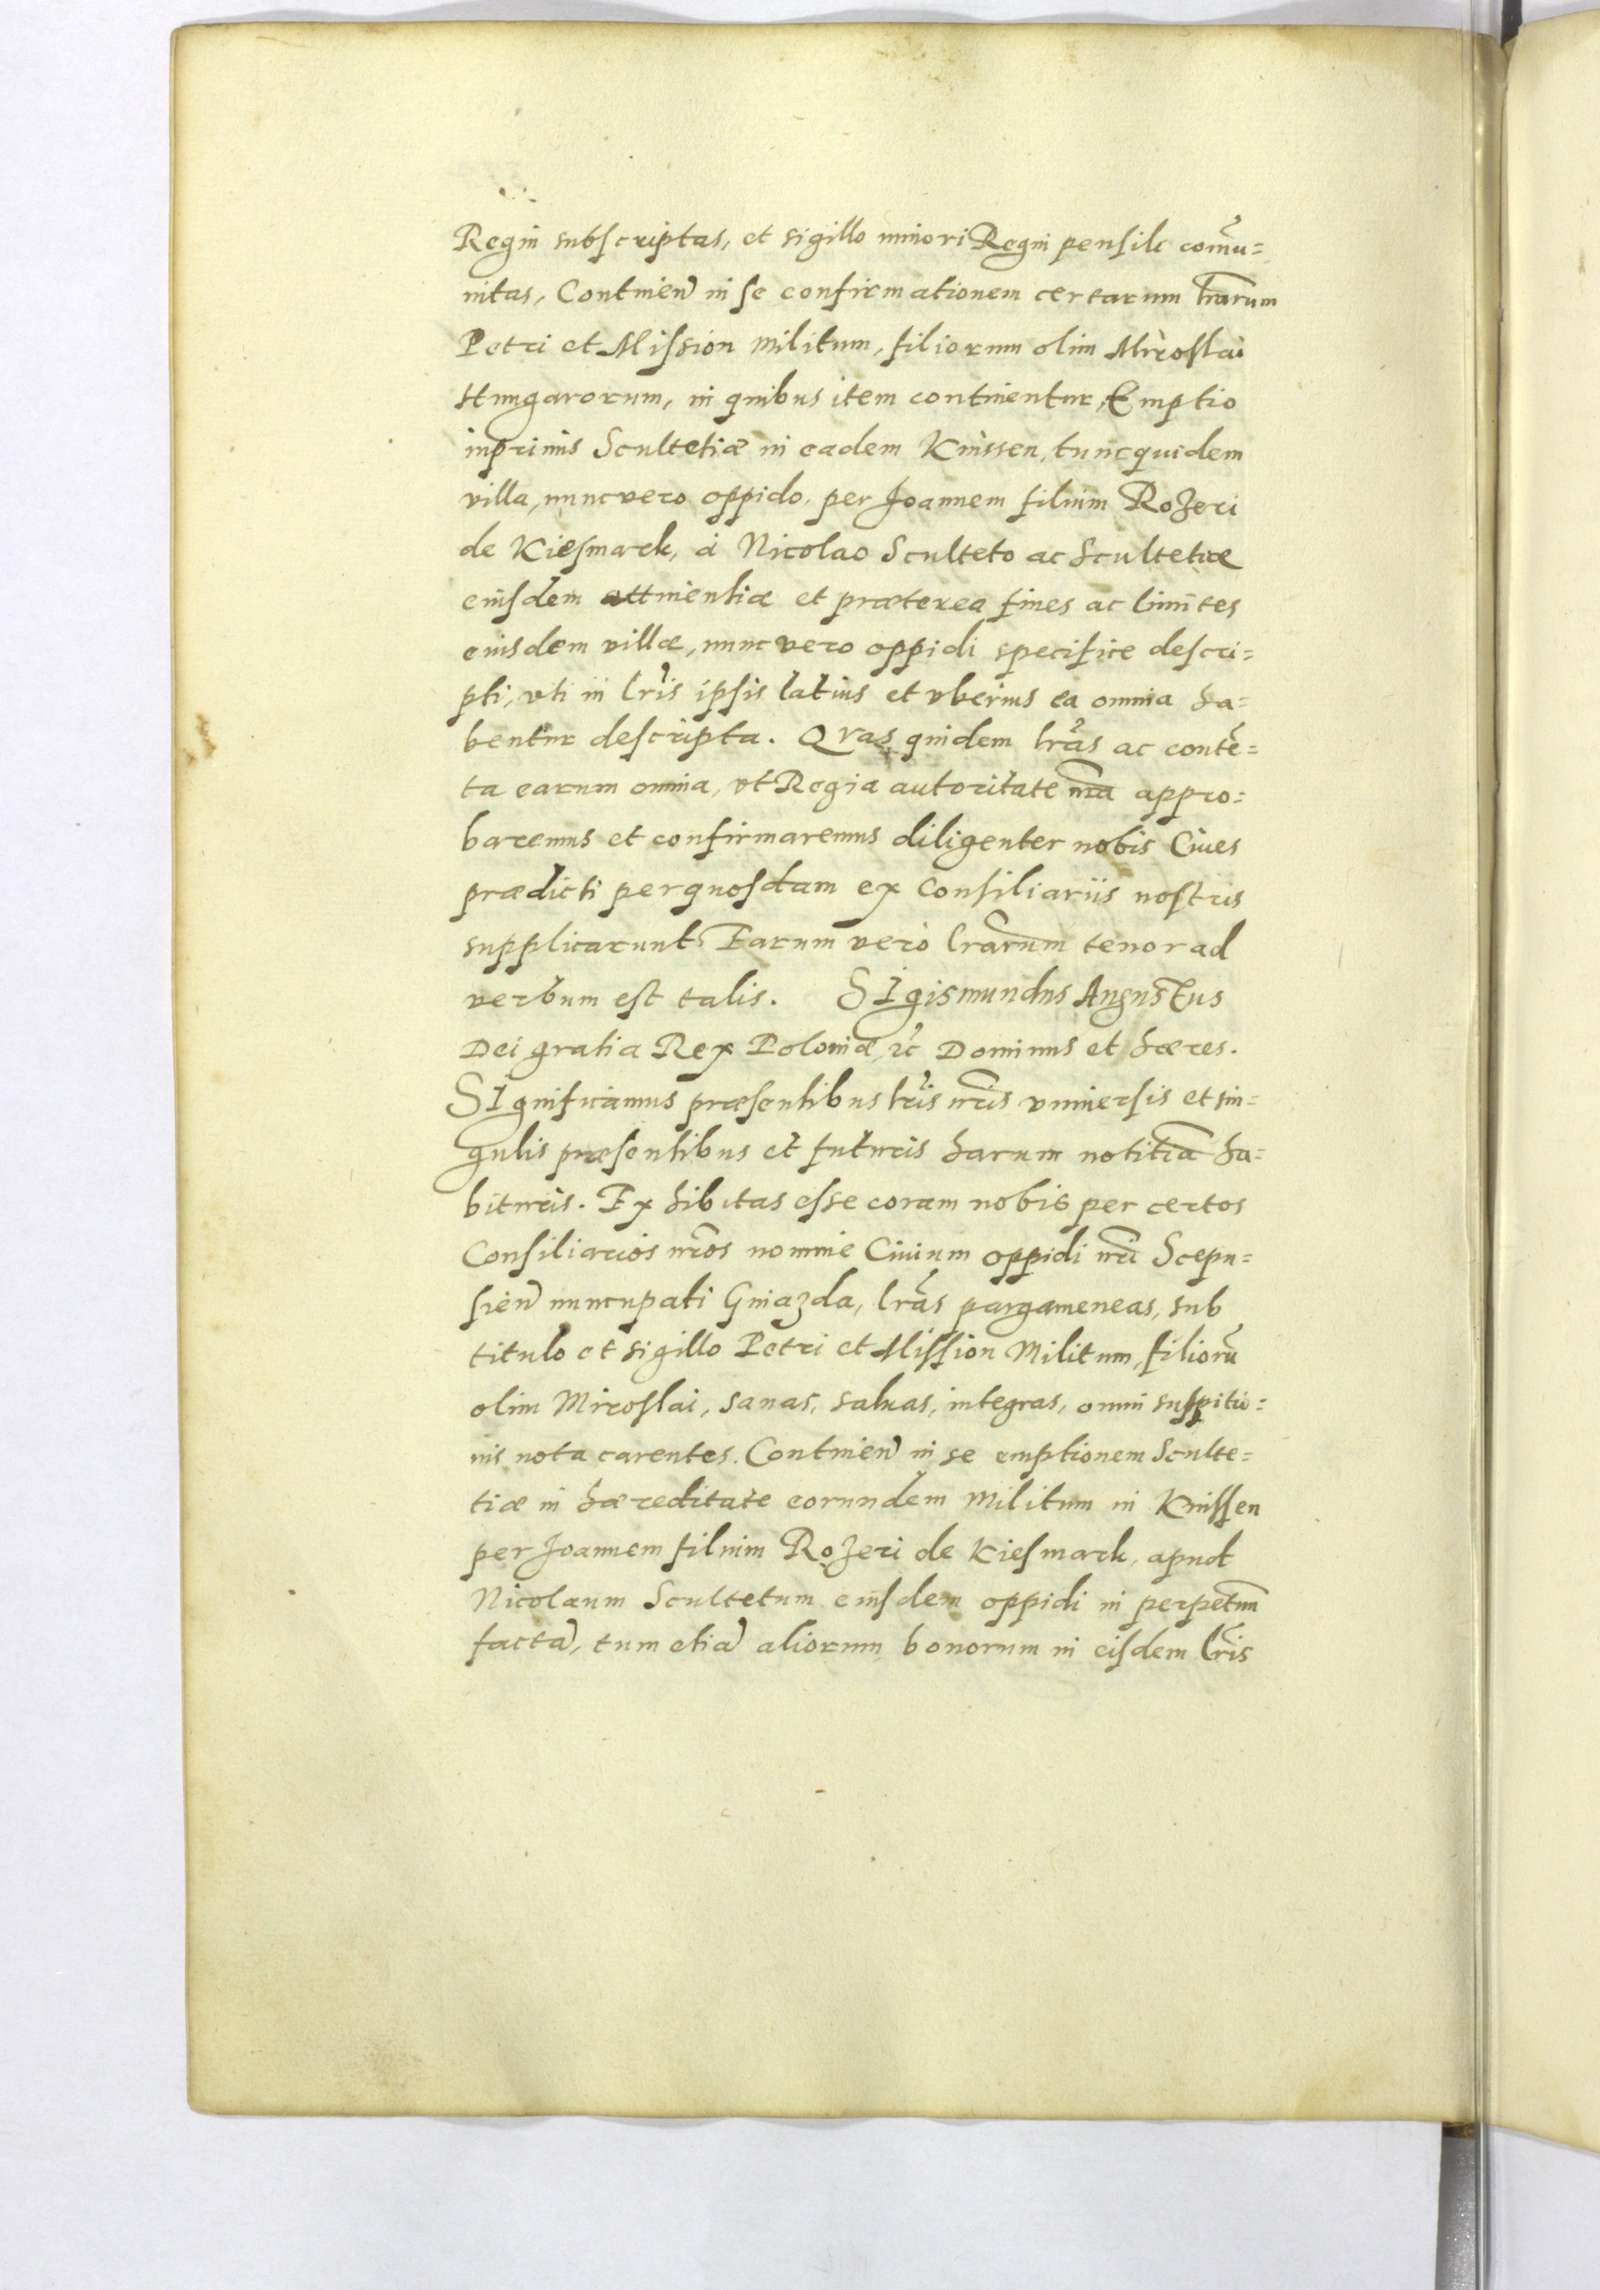 Regni subscriptas, et sigillo minori Regni pensili com̃u=
nitas, Continen̄ in se confirmationem certarum lr̃arum
Petri et Mission militum, filiorum olim Miroslai
Hungarorum, in quibus item continentur, Emptio
inprimis Scultetiæ in eadem Knissen, tunc quidem
villa, nunc vero oppido, per Joannem filium Rozeri
de Kiesmark, à Nicolao Sculteto ac Scultetiæ
eiusdem attinentiæ et præterea fines ac limites
eiusdem villæ, nunc vero oppidi specifice descri=
pti, vti in lr̃is ipsis latius et vberius ea omnia ha=
bentur descripta. Qvas quidem lr̃as ac contẽ=
ta earum omnia, vt Regia autoritate nr̃a appro=
baremus et confirmaremus diligenter nobis Ciues
prædicti per quosdam ex Consiliariis nostris
supplicarunt. Earum verò lr̃arum tenor ad
verbum est talis. SIgismundus Augustus
Dei gratia Rex Poloniæ, ꝛc̃ Dominus et hæres.
SIgnificamus præsentibus lr̃is nr̃is vniuersis et sin=
gulis præsentibus et futuris harum notitiã ha=
bituris. Exhibitas esse coram nobis per certos
Consiliarios nr̃os nomine Ciuium oppidi nr̃i Scepu=
sien̄ nuncupati Gniazda, lr̃as pargameneas, sub
titulo et sigillo Petri et Mission Militum, filiorũ
olim Miroslai, sanas, saluas, integras, omni suspitio=
nis nota carentes. Continen̄ in se emptionem Sculte=
tiæ in hæreditate eorundem Militum in Knissen
per Joannem filium Rozeri de Kiesmark, apud
Nicolaum Scultetum eiusdem oppidi in perpetuũ
factã, tum etiã aliorum bonorum in eisdem lr̃is